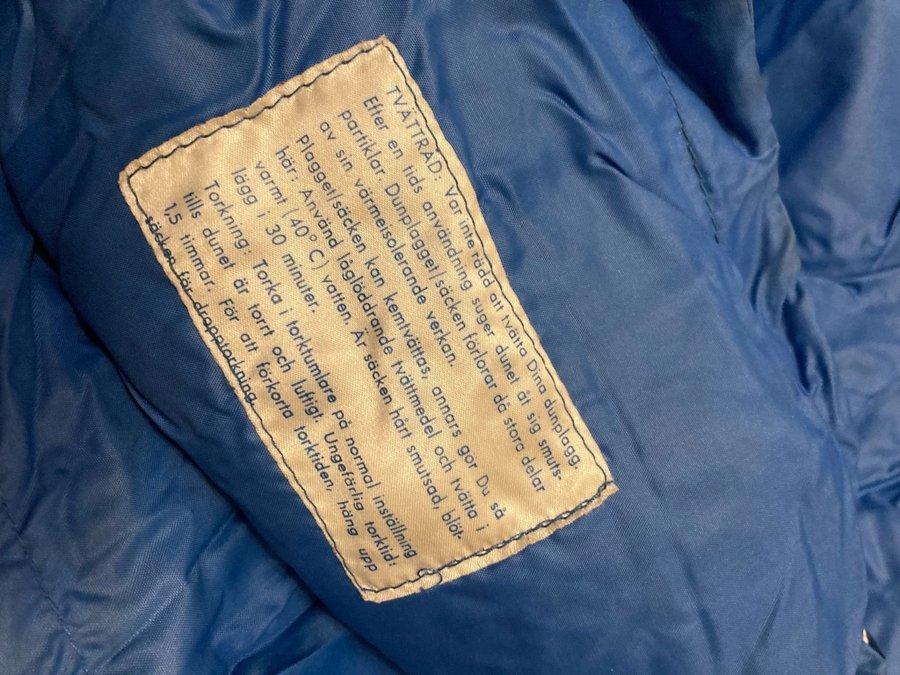 TVÄTTRÅD: Var inte rädd att tvätta Dina dunplagg.
Efter en tids användning suger dunet åt sig smuts-
partiklar. Dunplagget/säcken förlorar då stora delar
av sin värmeisolerande verkan.
Plagget/säcken kan kemtvättas, annars gör Du så
här: Använd låglöddrande tvättmedel och tvätta i
varmt (40° C) vatten. Är säcken hårt smutsad, blöt-
lägg i 30 minuter.
Torkning: Torka i torktumlare på normal inställning
tills dunet är torrt och luftigt. Ungefärlig torktid:
1,5 timmar. För att förkorta torktiden, häng upp
säcken för dropptorkning.